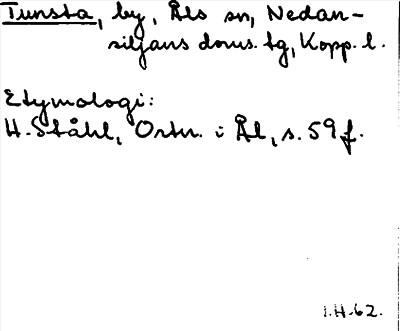 Tunsta, by, Åls sn, Nedan-
siljans doms. tg, Kopp. l.
Etymologi:
H. Ståhl, Ortn. i Ål, s. 59 f.
I.H.62.